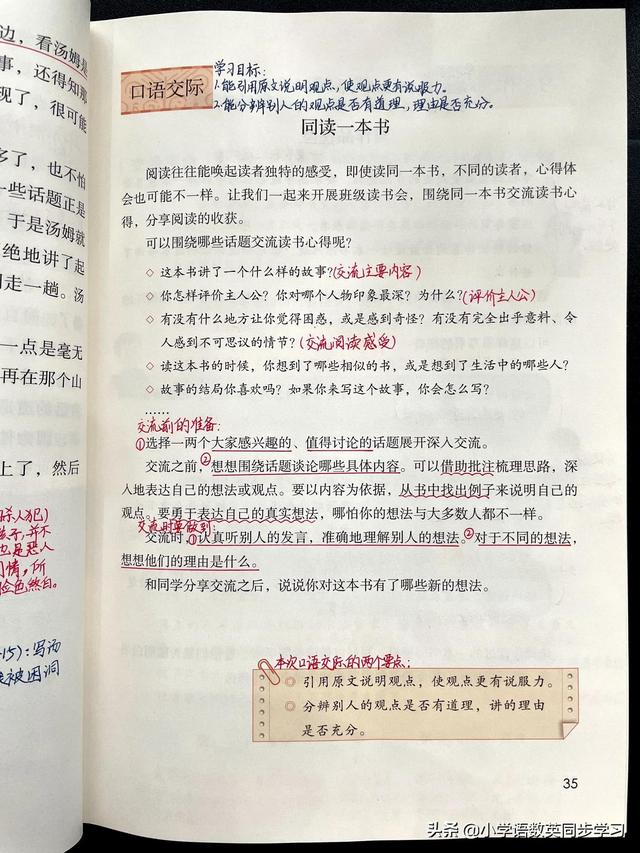 边，看汤姆是
事，还得知那
现了，很可能
多了，也不怕
一些话题正是
于是汤姆就
绝地讲了起
走一趟。汤
一点是毫无
再在那个山
上了，然后
杀人犯)
并不
也是恶人
同情，所
脸色煞白。
15)：写汤
被困洞
学习目标：
口语交际
1.能引用原文说明观点，使观点更有说服力。
2.能分辨别人的观点是否有道理，理由是否充分。
同读一本书
阅读往往能唤起读者独特的感受，即使读同一本书，不同的读者，心得体
会也可能不一样。让我们一起来开展班级读书会，围绕同一本书交流读书心
得，分享阅读的收获。
可以围绕哪些话题交流读书心得呢？
◇ 这本书讲了一个什么样的故事？(交流主要内容)
◇ 你怎样评价主人公？你对哪个人物印象最深？为什么？(评价主人公)
◇ 有没有什么地方让你觉得困惑，或是感到奇怪？有没有完全出乎意料、令
人感到不可思议的情节？(交流阅读感受)
◇ 读这本书的时候，你想到了哪些相似的书，或是想到了生活中的哪些人？
◇ 故事的结局你喜欢吗？如果你来写这个故事，你会怎么写？
……
交流前的准备：
①选择一两个大家感兴趣的、值得讨论的话题展开深入交流。
交流之前，②想想围绕话题谈论哪些具体内容。可以借助批注梳理思路，深
入地表达自己的想法或观点。要以内容为依据，从书中找出例子来说明自己的
观点。要勇于表达自己的真实想法，哪怕你的想法与大多数人都不一样。
交流时要做到：
交流时，①认真听别人的发言，准确地理解别人的想法。②对于不同的想法，
想想他们的理由是什么。
和同学分享交流之后，说说你对这本书有了哪些新的想法。
本次口语交际的两个要点：
◎ 引用原文说明观点，使观点更有说服力。
◎ 分辨别人的观点是否有道理，讲的理由
是否充分。
35
头条 @小学语数英同步学习